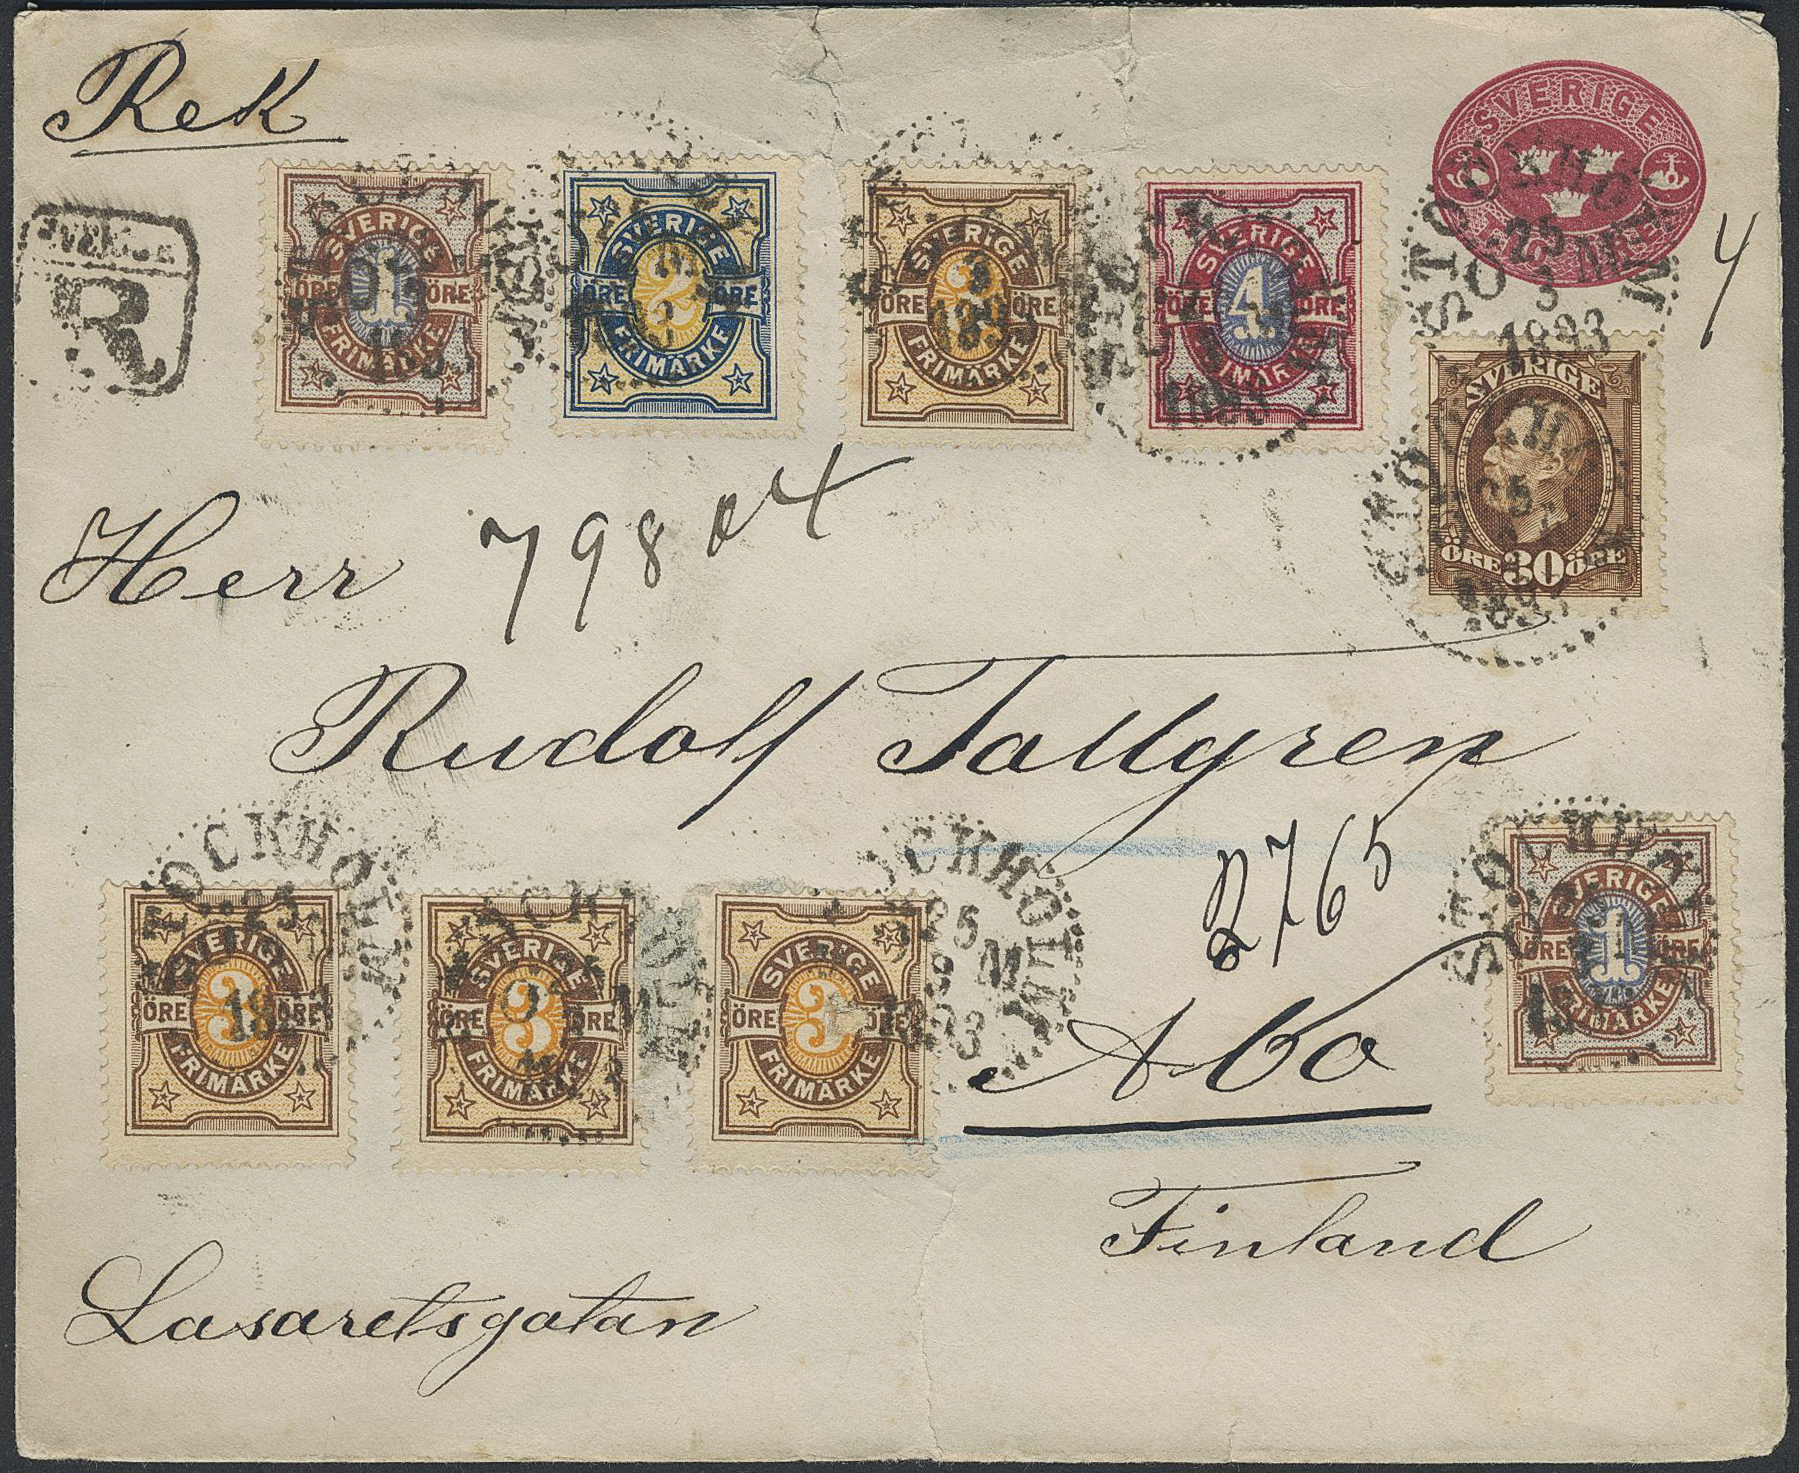 Rek
SVERIGE
TIO ÖRE
SVERIGE
R
SVERIGE
ÖRE 1 ÖRE
FRIMÄRKE
SVERIGE
ÖRE 2 ÖRE
FRIMÄRKE
SVERIGE
ÖRE 3 ÖRE
FRIMÄRKE
SVERIGE
ÖRE 4 ÖRE
FRIMÄRKE
STOCKHOLM
25
3
1893
4
SVERIGE
ÖRE 30 ÖRE
Herr
798
Rudolf Tallgren
2765
STOCKHOLM
25
SVERIGE
ÖRE 3 ÖRE
FRIMÄRKE
SVERIGE
ÖRE 3 ÖRE
FRIMÄRKE
SVERIGE
ÖRE 3 ÖRE
FRIMÄRKE
STOCKHOLM
25
SVERIGE
ÖRE 1 ÖRE
FRIMÄRKE
Abo
Finland
Lasaretsgatan